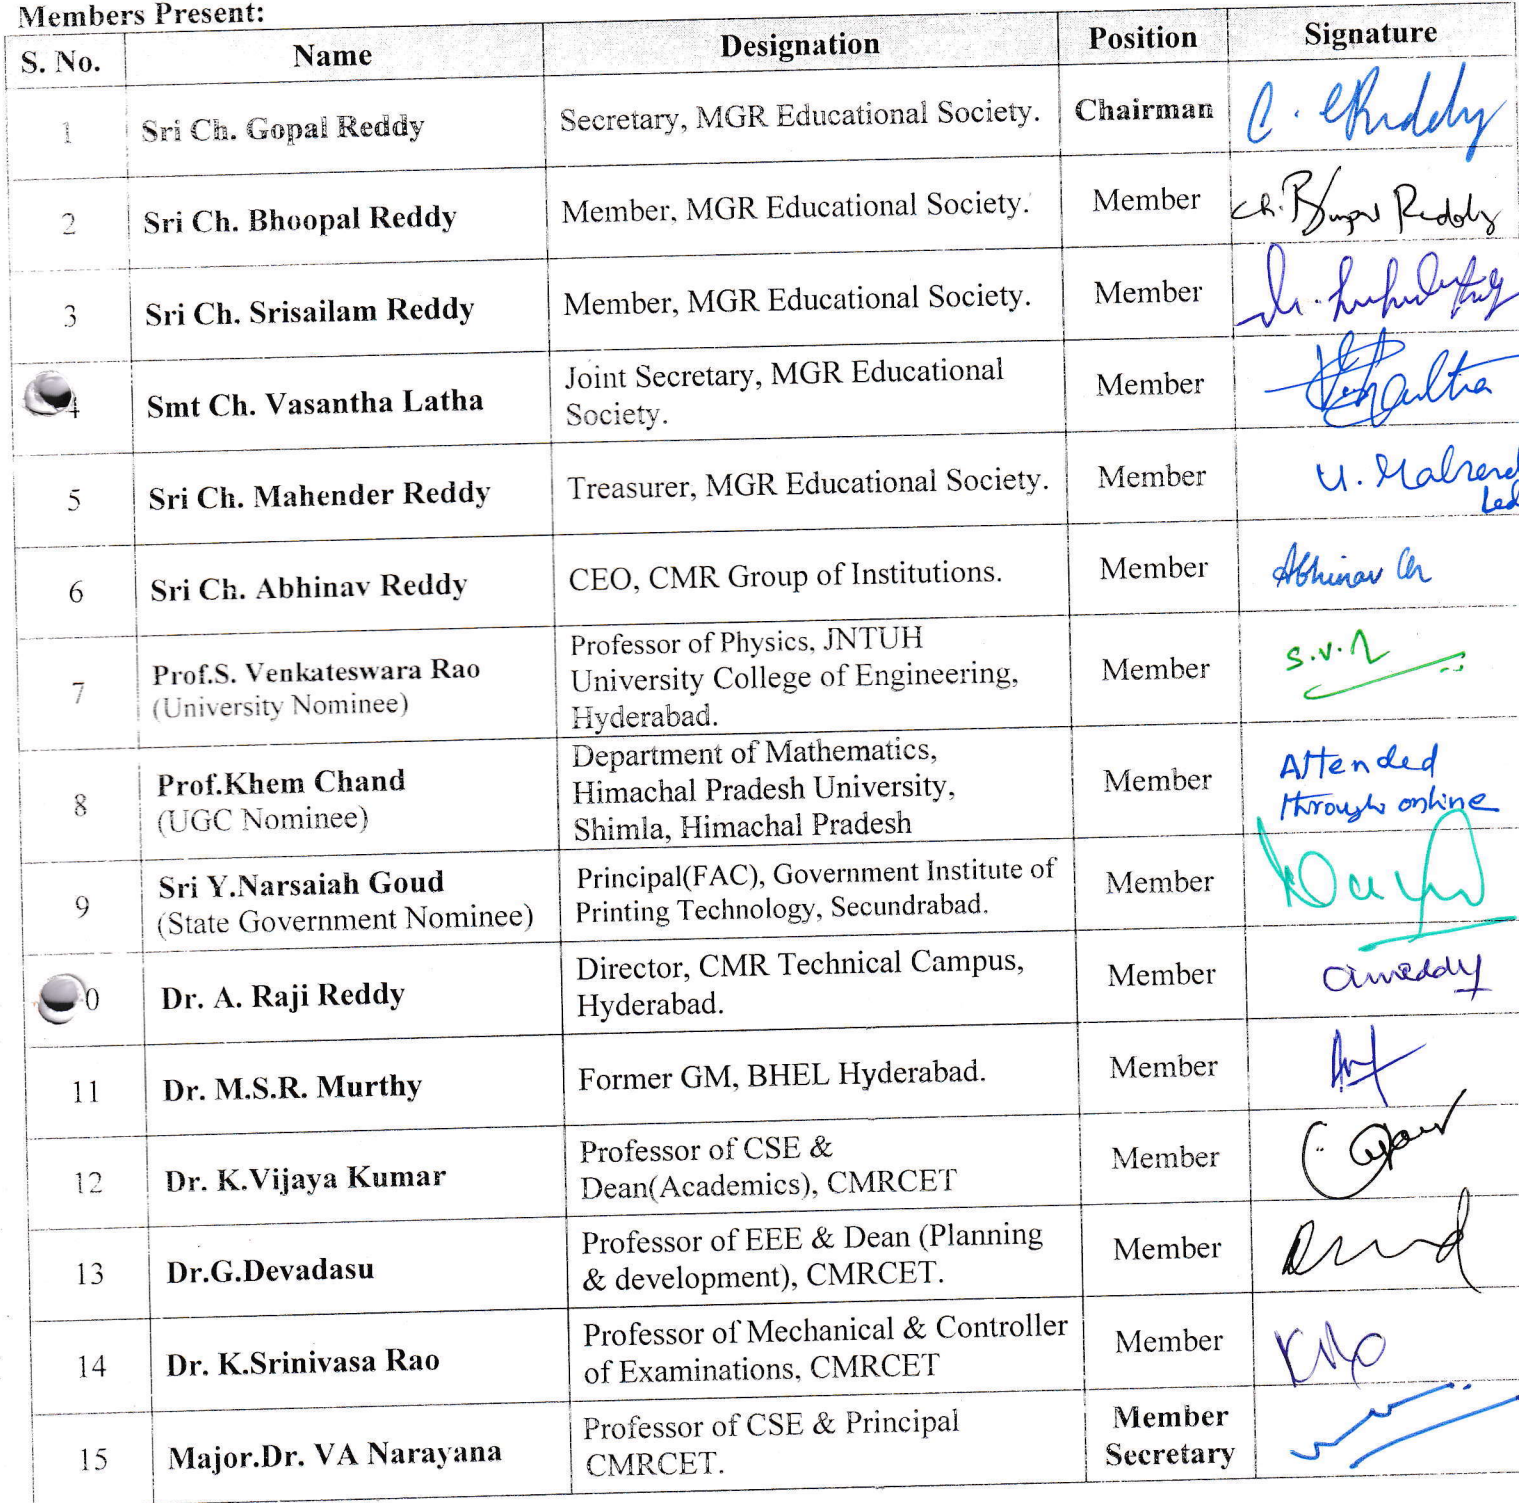 Members Present:
S. No. Name Designation Position Signature
1 Sri Ch. Gopal Reddy Secretary, MGR Educational Society. Chairman C. Reddy
2 Sri Ch. Bhoopal Reddy Member, MGR Educational Society. Member Ch. Reddy
3 Sri Ch. Srisailam Reddy Member, MGR Educational Society. Member
4 Smt Ch. Vasantha Latha Joint Secretary, MGR Educational
Society. Member
5 Sri Ch. Mahender Reddy Treasurer, MGR Educational Society. Member
6 Sri Ch. Abhinav Reddy CEO, CMR Group of Institutions. Member Abhinav Ch
7 Prof.S. Venkateswara Rao
(University Nominee) Professor of Physics, JNTUH
University College of Engineering,
Hyderabad. Member S.V.R
8 Prof.Khem Chand
(UGC Nominee) Department of Mathematics,
Himachal Pradesh University,
Shimla, Himachal Pradesh Member Attended
through online
9 Sri Y.Narsaiah Goud
(State Government Nominee) Principal(FAC), Government Institute of
Printing Technology, Secundrabad. Member
0 Dr. A. Raji Reddy Director, CMR Technical Campus,
Hyderabad. Member
11 Dr. M.S.R. Murthy Former GM, BHEL Hyderabad. Member
12 Dr. K.Vijaya Kumar Professor of CSE &
Dean(Academics), CMRCET Member
13 Dr.G.Devadasu Professor of EEE & Dean (Planning
& development), CMRCET. Member
14 Dr. K.Srinivasa Rao Professor of Mechanical & Controller
of Examinations, CMRCET Member
15 Major.Dr. VA Narayana Professor of CSE & Principal
CMRCET. Member
Secretary